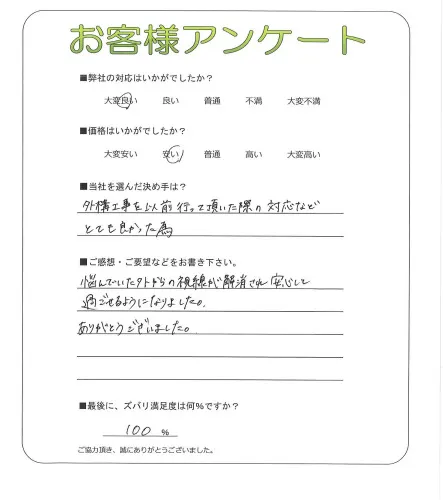 お客様アンケート
■弊社の対応はいかがでしたか？
大変良い 良い 普通 不満 大変不満
■価格はいかがでしたか？
大変安い 安い 普通 高い 大変高い
■当社を選んだ決め手は？
外構工事を以前行って頂いた際の対応など
とても良かった為
■ご感想・ご要望などをお書き下さい。
悩んでいた外からの視線が解消され安心して
過ごせるようになりました。
ありがとうございました。
■最後に、ズバリ満足度は何％ですか？
100 ％
ご協力頂き、誠にありがとうございました。